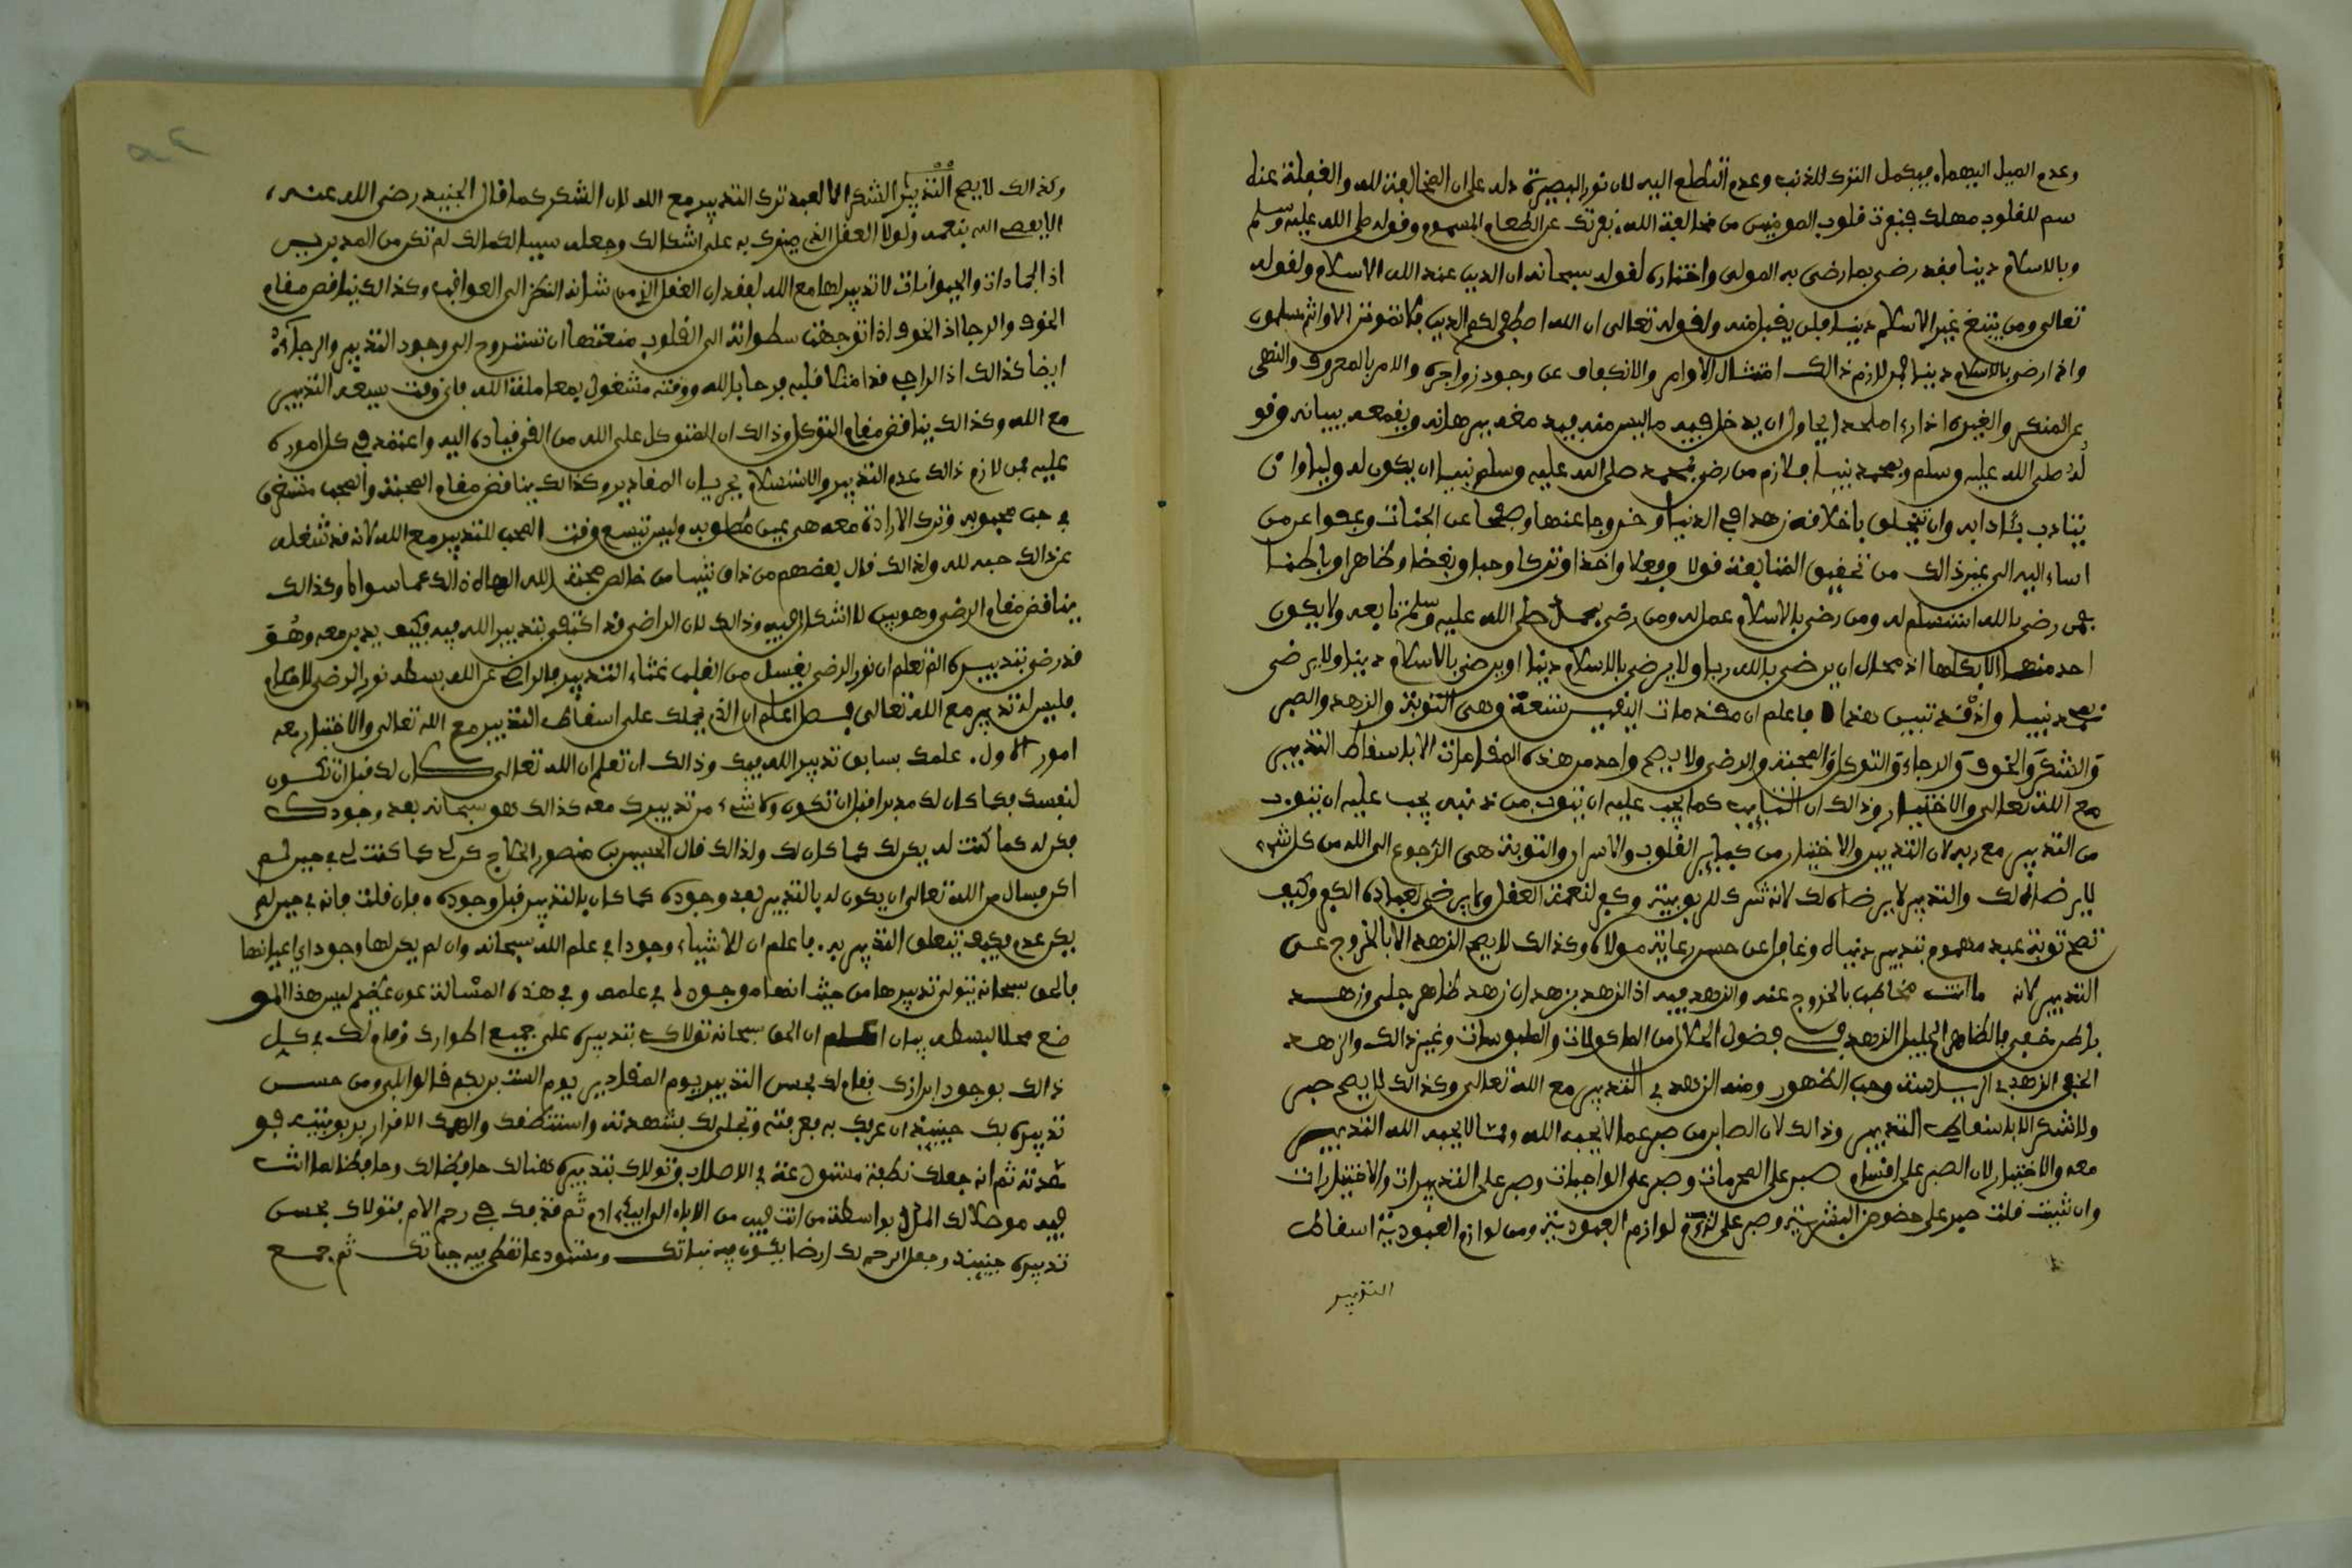 وعدم الميل اليهما فيكمل الترك للذنب وعدم التطلع اليه لان نور البصيرة دله على ان المخالفة لله والغفلة عنه
سم للقلوب مهلك فنفرت قلوب المومنين من مخالفة الله نفرتك عن الطعام المسموم وقوله صلى الله عليه وسلم
وبالاسلام دينا فقد رضي بما رضي به المولى واختاره لقوله سبحانه ان الدين عند الله الاسلام ولقوله
تعالى ومن يبتغ غير الاسلام دينا فلن يقبل منه ولقوله تعالى ان الله اصطفى لكم الدين فلا تموتن الا وانتم مسلمون
واذا رضي بالاسلام دينا فمن لازم ذالك امتثال الاوامر والانكفاف عن وجود زواجره والامر بالمعروف والنهي
عن المنكر والغيرة اذا رءا ملحدا يحاول ان يدخل فيه ما ليس منه فيدمغه ببرهانه ويقمعه ببيانه وقو
له صلى الله عليه وسلم وبمحمد نبيا فلازم من رضي بمحمد صلى الله عليه وسلم نبيا ان يكون له وليا وان
يتادب بئادابه وان يتخلق باخلاقه زهدا في الدنيا وخروجا عنها وصفحا عن الجنات وعفوا عن من
اساء اليه الى غير ذالك من تحقيق المتابعة قولا وفعلا واخذا وتركا وحبا وبغضا وظاهرا وباطنا
فمن رضي بالله استسلم له ومن رضي بالاسلام عمل له ومن رضي بمحمد صلى الله عليه وسلم تابعه ولا يكون
احد منها الا بكلها اذ محال ان يرضى بالله ربا ولا يرضى بالاسلام دينا او يرضى بالاسلام دينا ولا يرضى
بمحمد نبيا واذ قد تبين هذا فاعلم ان مقدمات اليقين تسعة وهي التوبة والزهد والصبر
والشكر والخوف والرجاء والتوكل والمحبة والرضى ولا يصح واحد من هذه المقامات الا باسقاط التدبير
مع الله تعالى والاختيار وذالك ان التايب كما يجب عليه ان يتوب من ذنبه يجب عليه ان يتوب
من التدبير مع ربه لان التدبير والاختيار من كباير القلوب والاسرار والتوبة هي الرجوع الى الله من كل شيء
لا يرضاه لك والتدبير لا يرضاه لك لانه شرك للربوبية وكفر لنعمة العقل ولا يرضى لعباده الكفر وكيف
تصح توبة عبد مهموم بتدبير دنياه وغافل عن حسن رعاية مولاه وكذالك لا يصح الزهد الا بالخروج عن
التدبير لانه ما انت مخاطب بالخروج عنه والزهد فيه اذ الزهد زهدان زهد ظاهر جلي وزهد
باطن خفي فالظاهر الجلي الزهد في فضول الحلال من الماكولات والملبوسات وغير ذالك والزهد
الخفي الزهد في الرياسة وحب الظهور ومنه الزهد في التدبير مع الله تعالى وكذالك لا يصح صبر
ولا شكر الا باسقاط التدبير وذالك لان الصابر من صبر عما لا يحبه الله ومما لا يحبه الله التدبير
معه والاختيار لان الصبر على اقسام صبر على المحرمات وصبر على الواجبات وصبر على التدبيرات والاختيارات
وان شيت قلت صبر على حضوض البشرية وصبر على لزوم لوازم العبودية ومن لوازم العبودية اسقاط
التدبير
وكذالك لا يصح الشكر الا لعبد ترك التدبير مع الله لان الشكر كما قال الجنيد رضي الله عنه
الا يعصى الله بنعمه ولولا العقل الذي ميزك به على اشكالك وجعله سببا لكمالك لم تكن من المدبرين
اذ الجمادات والحيوانات لا تدبير لها مع الله لفقدان العقل الذي من شانه النظر الى العواقب وكذالك يناقض مقام
الخوف والرجا اذ الخوف اذا توجهت سطواته الى القلوب منعتها ان تستروح الى وجود التدبير والرجاء
ايضا كذالك اذ الراجي قد امتلا قلبه فرحا بالله ووقته مشغول بمعاملة الله فاي وقت يسعه التدبير
مع الله وكذالك يناقض مقام التوكل وذالك ان المتوكل على الله من القى قياده اليه واعتمد في كل اموره
عليه فمن لازم ذالك عدم التدبير والاستسلام لجريان المقادير وكذالك يناقض مقام المحبة والمحب مستغرق
في حب محبوبه وترك الارادة معه هي عين مطلوبه وليس يتسع وقت المحب للتدبير مع الله لانه قد شغله
عن ذالك حبه لله ولذالك قال بعضهم من ذاق شيا من خالص محبة الله الهاه ذالك عما سواه وكذالك
يناقض مقام الرضى وهو بين لا اشكال فيه وذالك لان الراضي قد اكتفى بتدبير الله فيه فكيف يدبر معه وهو
قد رضي بتدبيره الم تعلم ان نور الرضى يغسل من القلب غثاء التدبير فالراضي عن الله بسطه نور الرضى لاحكامه
فليس له تدبير مع الله تعالى فصل اعلم ان الذي يحملك على اسقاط التدبير مع الله تعالى والاختيار معه
امور الاول علمك بسابق تدبير الله فيك وذالك ان تعلم ان الله تعالى كان لك قبل ان تكون
لنفسك فكما كان لك مدبرا قبل ان تكون ولا شيء من تدبيرك معه كذالك هو سبحانه بعد وجودك
فكن له كما كنت له يكن لك كما كان لك ولذالك قال الحسين بن منصور الحلاج كن لي كما كنت لي في حين لم
اكن فسال من الله تعالى ان يكون له بالتدبير بعد وجوده كما كان له بالتدبير قبل وجوده فان قلت فانه في حين لم
يكن عدم فكيف يتعلق التدبير به فاعلم ان للاشياء وجودا في علم الله سبحانه وان لم يكن لها وجود في اعيانها
فالحق سبحانه يتولى تدبيرها من حيث انها موجودة في علمه وفي هذه المسالة غور عظيم ليس هذا المو
ضع محلا لبسطه بيان اعلم ان الحق سبحانه تولاك بتدبيره على جميع اطوارك وقام لك في كل
ذالك بوجود ابرازك فقام لك بحسن التدبير يوم المقادير يوم الست بربكم قالوا بلى ومن حسن
تدبيره بك حينيذ ان عرفك به فعرفته وتجلى لك فشهدته واستنطقك والهمك الاقرار بربوبيته فو
حدته ثم انه جعلك نطفة مستودعة في الاصلاب وتولاك بتدبيره هنالك حافظا لك وحافظا لما انت
فيه موصلا لك المدد بواسطة من انت فيه من الاباء الى ابيك ادم ثم قذفك في رحم الام فتولاك بحسن
تدبيره حينيذ وجعل الرحم لك ارضا يكون فيه نباتك ومستودعا تعطى فيه حياتك ثم جمع